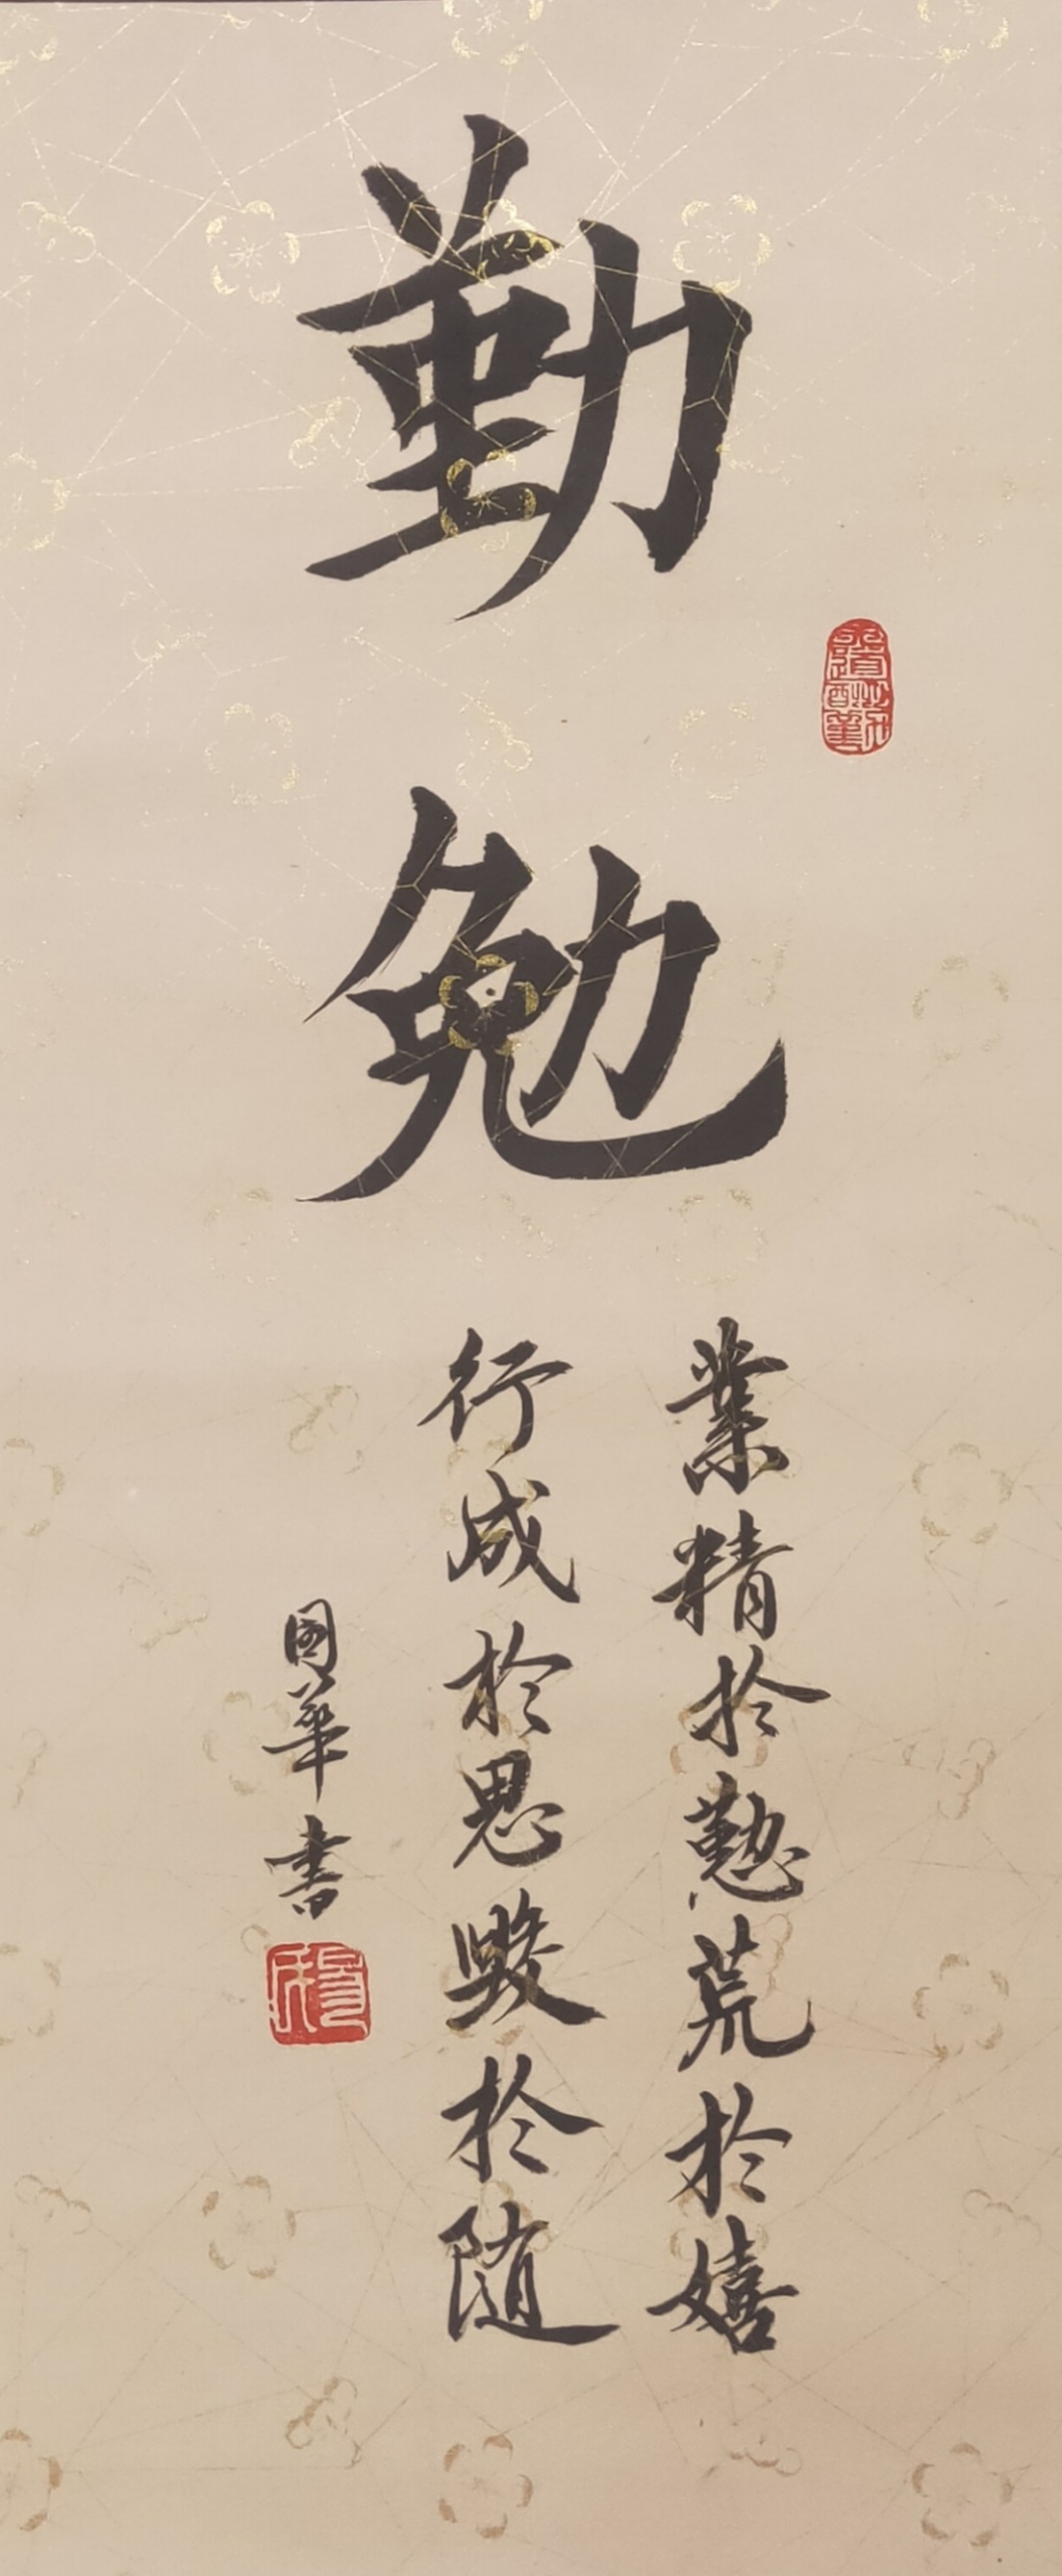 勤勉
業精於懃荒於嬉
行成於思毀於随
國華書